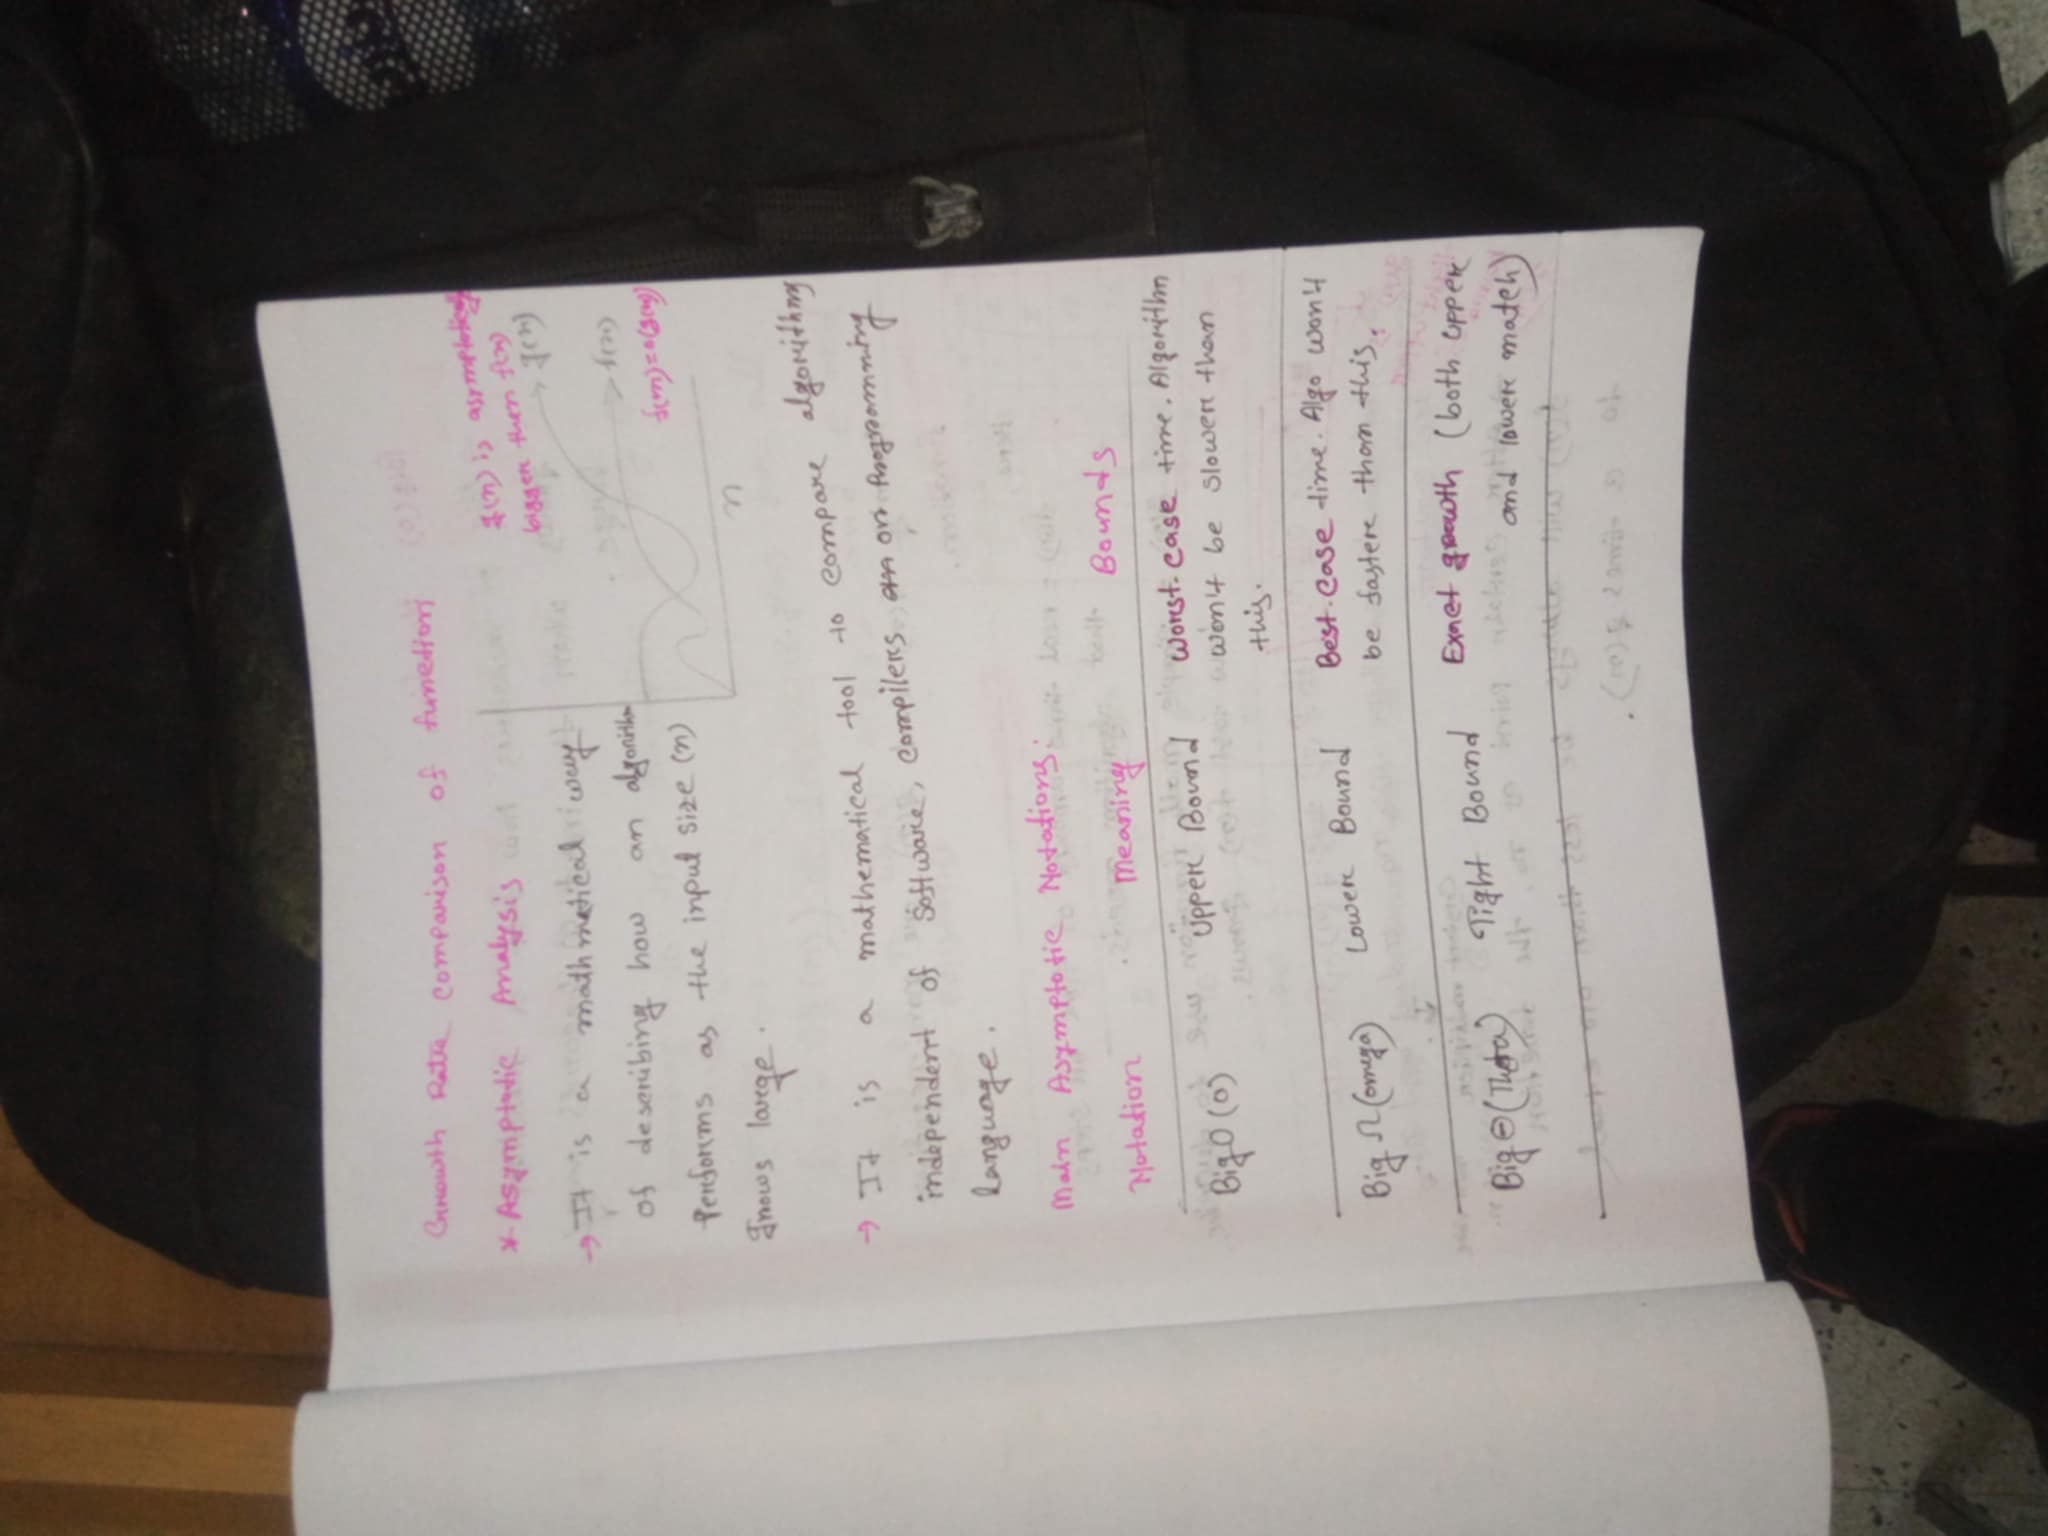 Growth Rate comparison of function
* Asymptotic Analysis
g(n) is asymptotically
bigger then f(n)
g(n)
f(n)
f(n)=O(g(n))
n
→ It is a mathmatical way
of describing how an algorithm
Performs as the input size (n)
grows large.
→ It is a mathematical tool to compare algorithms
independent of Software, compilers or Programming
language.
Main Asymptotic Notations:
Notation Meaning Bounds
Big O (O) Upper Bound Worst-case time. Algorithm
won't be slower than
this.
Big Ω (omega) Lower Bound Best-case time. Algo won't
be faster than this.
Big Θ (Theta) Tight Bound Exact growth (both upper
and lower match)